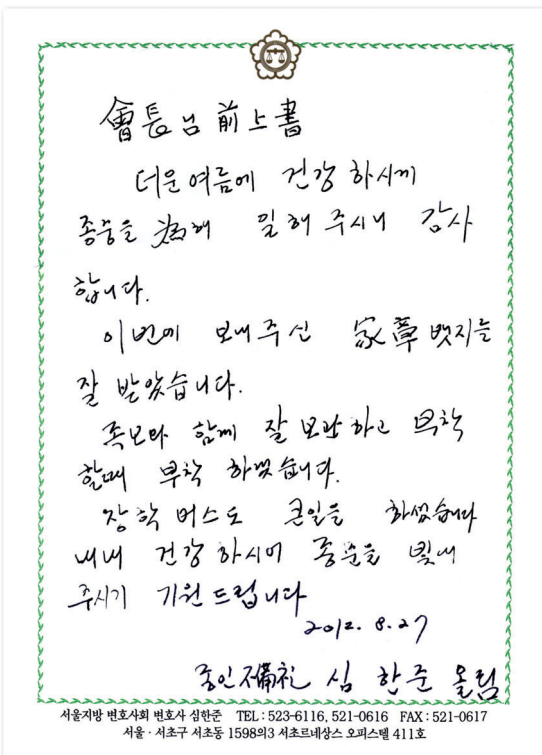 會長님 前上書
더운여름에 건강 하시게
종중을 爲해 일해 주시니 감사
합니다.
이번에 보내주신 家章 뱃지를
잘 받았습니다.
족보와 함께 잘 보관하고 부착
할때 부착 하겠습니다.
장학 버스도 큰일을 하셨습니다
내내 건강 하시어 종중을 빛내
주시기 기원 드립니다
2012. 8. 27
종인 不備礼 심 한 준 올림
서울지방 변호사회 변호사 심한준 TEL : 523-6116, 521-0616 FAX : 521-0617
서울 · 서초구 서초동 1598의3 서초르네상스 오피스텔 411호